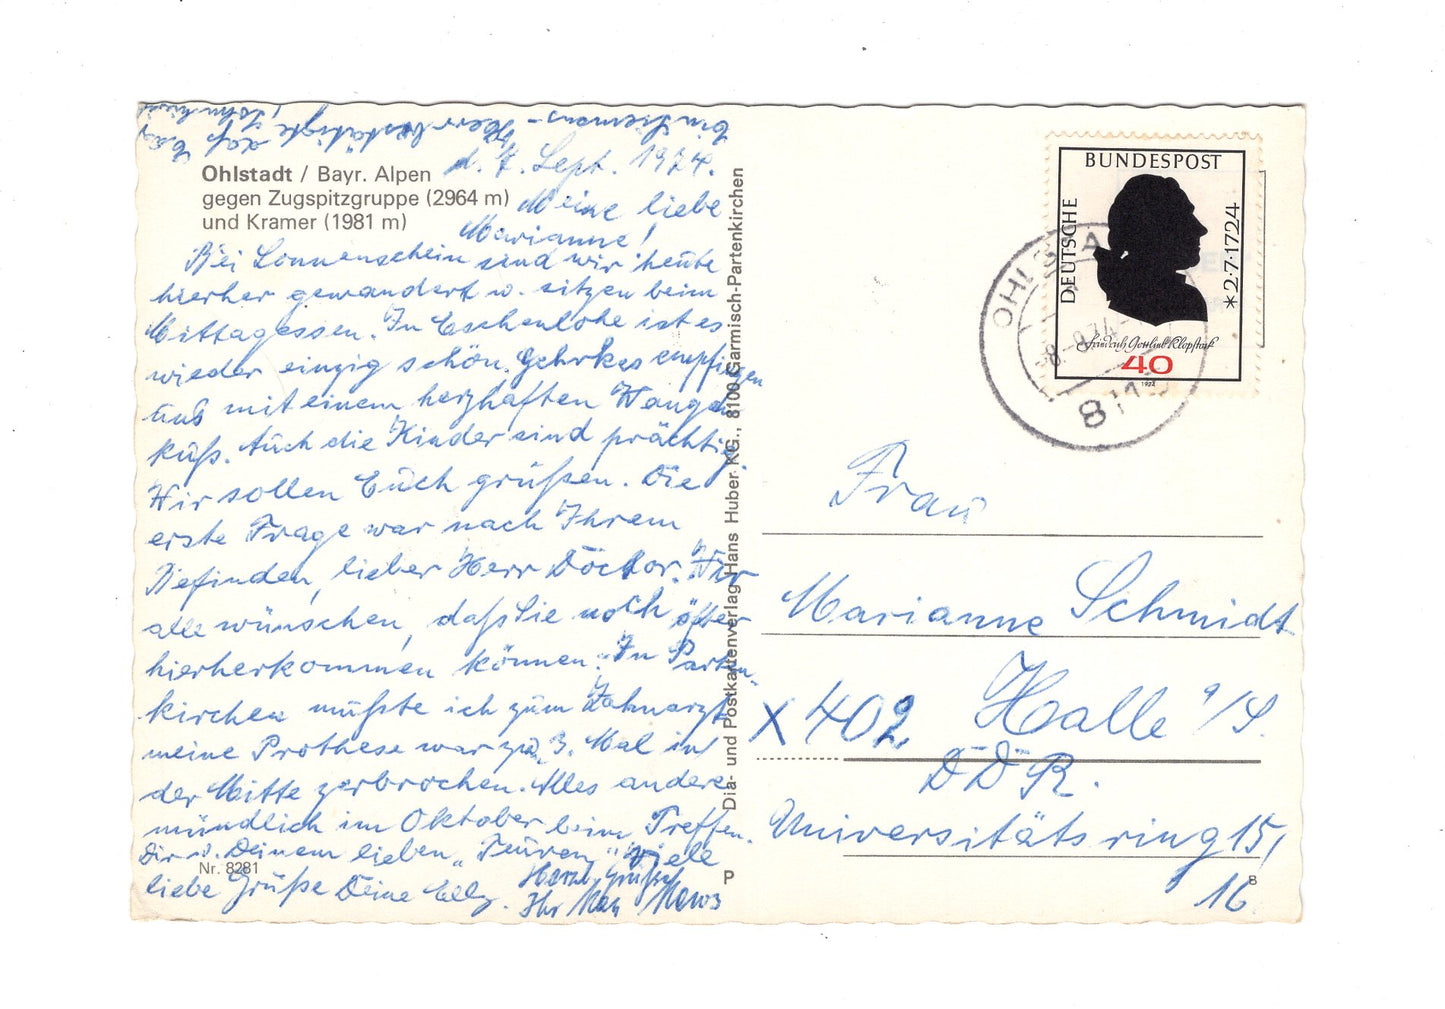 Ohlstadt / Bayr. Alpen
gegen Zugspitzgruppe (2964 m)
und Kramer (1981 m)
d. 7. Sept. 1974.
Meine liebe
Marianne!
Bei Sonnenschein sind wir heute
hierher gewandert u. sitzen beim
Mittagessen. In Eschenlohe ist es
wieder einzig schön. Gehrkes empfingen
uns mit einem herzhaften Wangen
kuß. Auch die Kinder sind prächtig.
Wir sollen Euch grüßen. Die
erste Frage war nach Ihrem
Befinden, lieber Herr Doctor. Wir
alle wünschen, daß Sie noch öfter
hierherkommen können. In Parten-
kirchen mußte ich zum Zahnarzt,
meine Prothese war zum 3. Mal in
der Mitte zerbrochen. Alles andere
mündlich im Oktober beim Treffen.
Dir u. Deinem lieben viele
liebe Grüße Deine Elly.
Herzl. Grüße
Ihr Max
Ein Siemens-Herr bestätigte daß
Nr. 8281
Dia- und Postkartenverlag Hans Huber KG., 8100 Garmisch-Partenkirchen
P
DEUTSCHE BUNDESPOST
*2·7·1724
Friedrich Gottlieb Klopstock
40
1974
OHLSTA
-8.-9.74-
811
Frau
Marianne Schmidt
X 402 Halle a/S.
DDR.
Universitätsring 15/
16
8